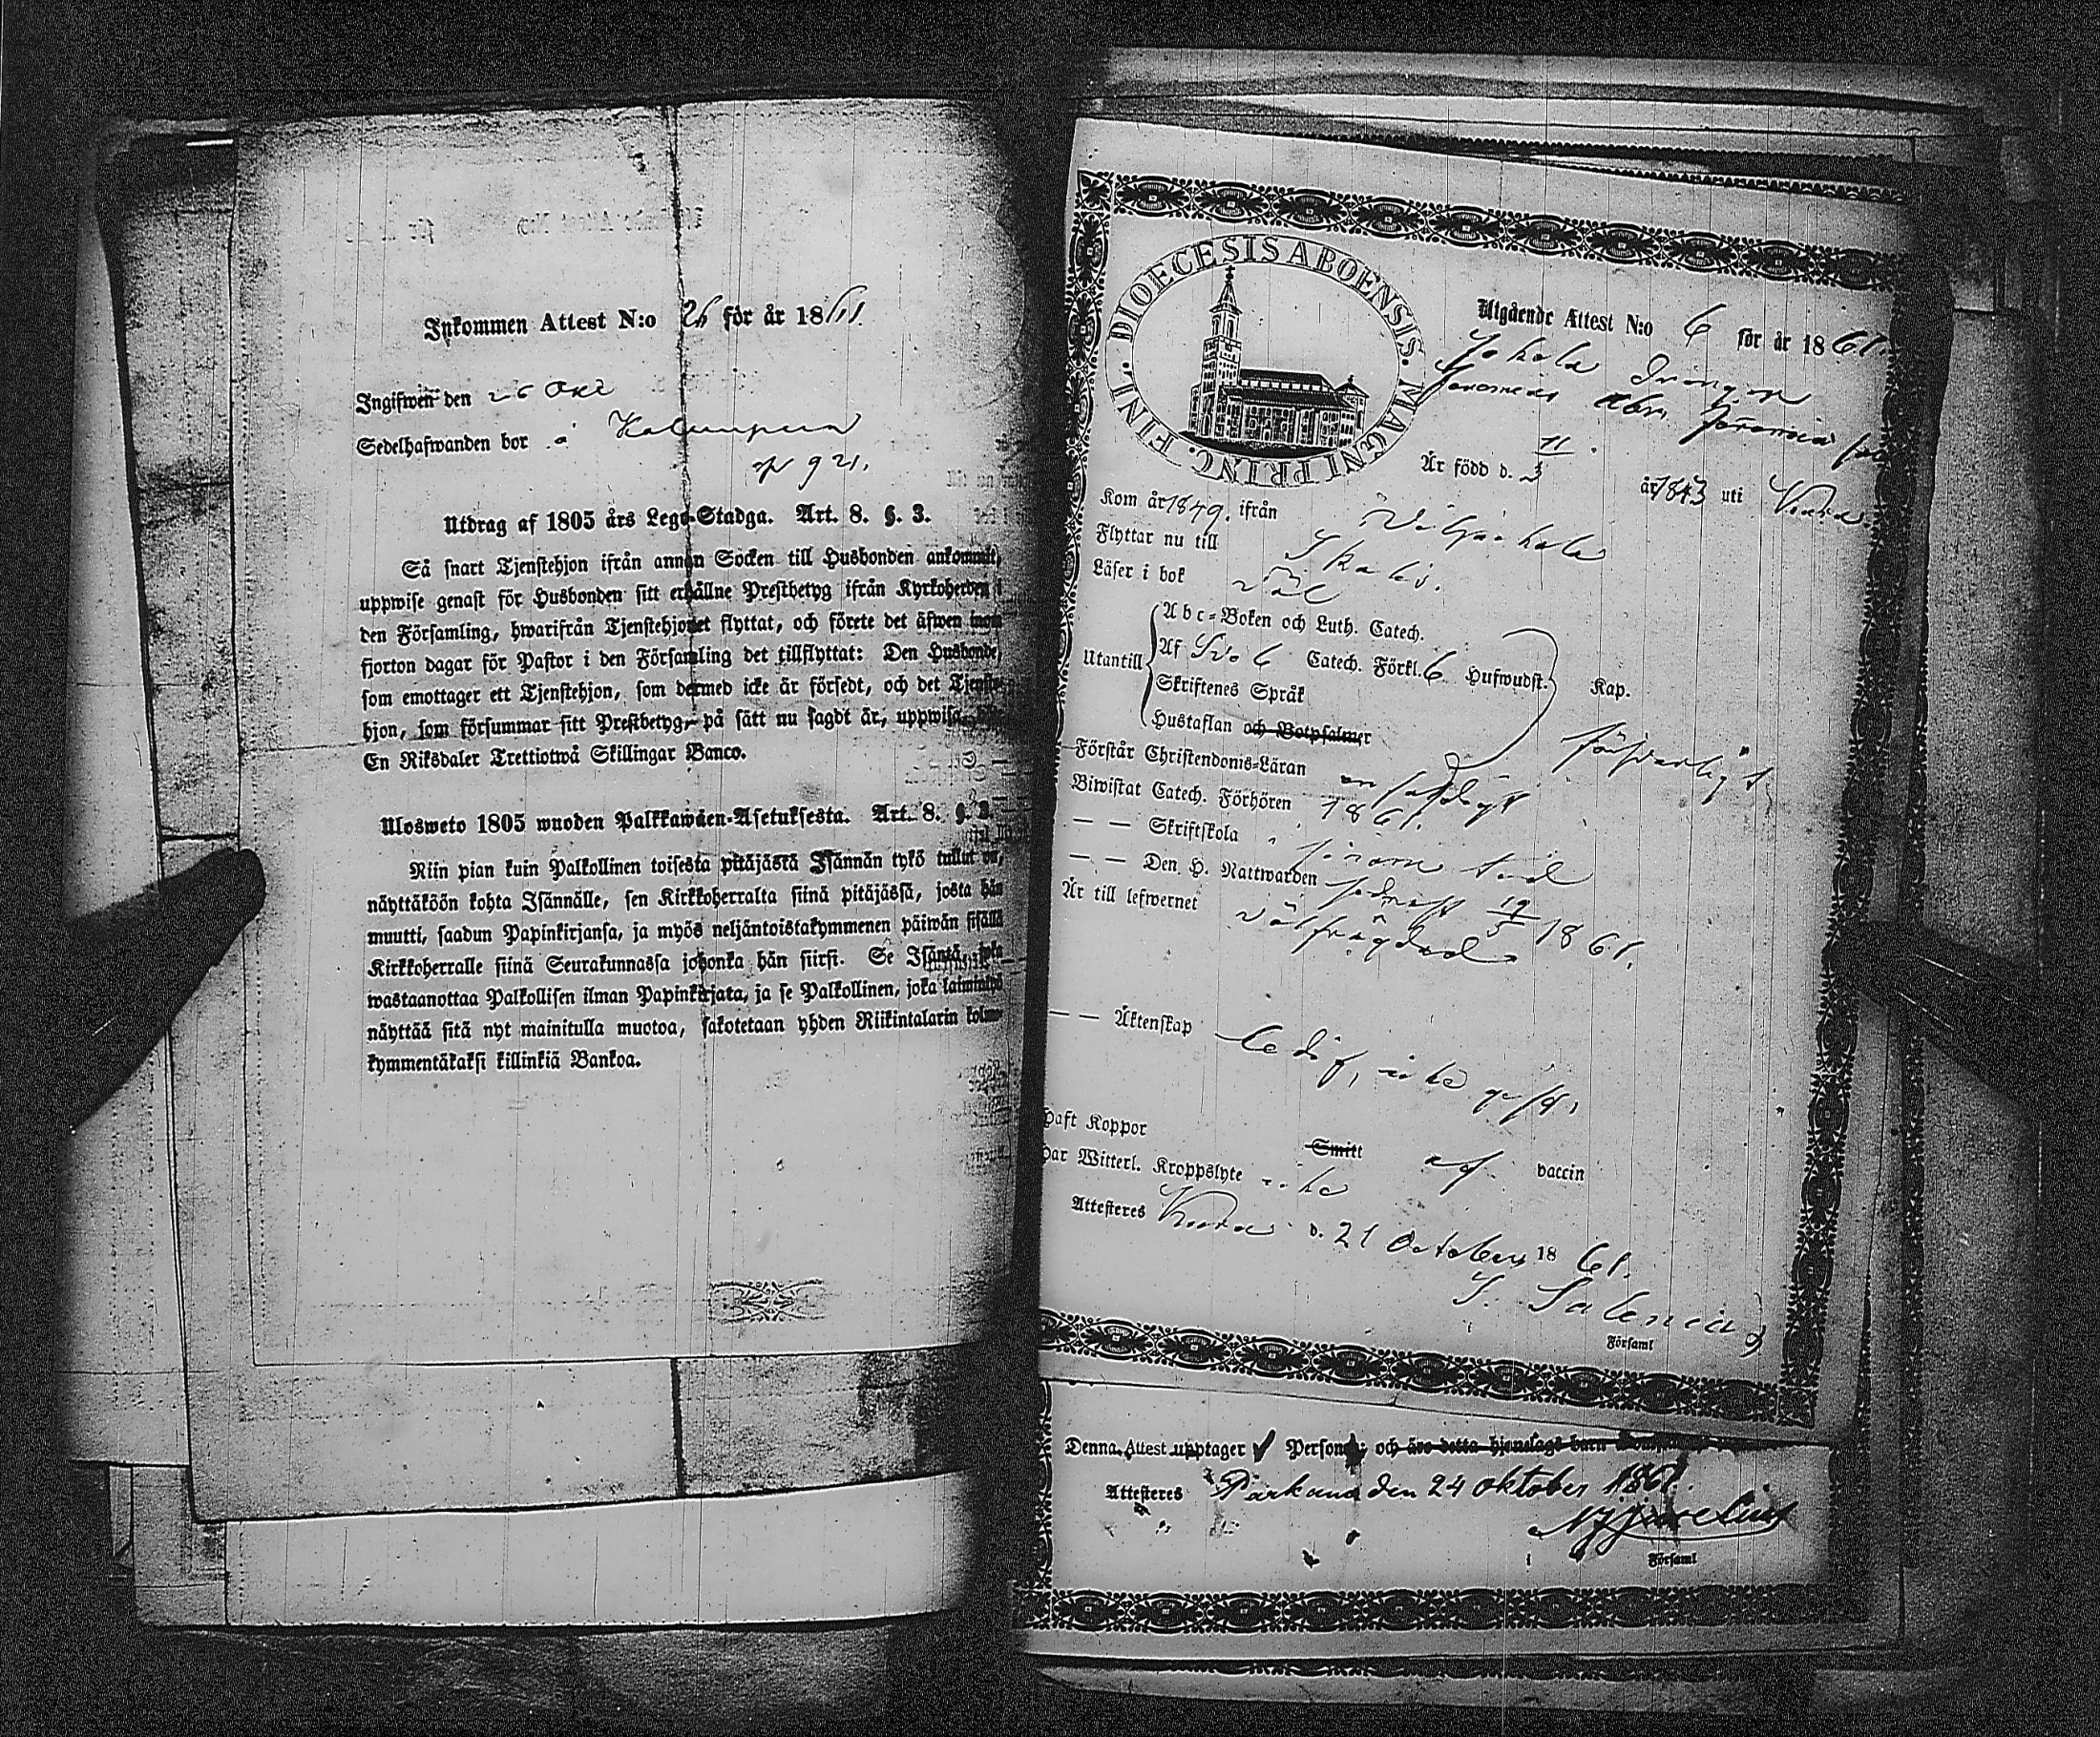 Inkommen Attest N:o 26 för år 1861.
Ingifwen den 26 Okt
Sedelhafwanden bor å
p 921.
Utdrag af 1805 års Lego-Stadga. Art. 8. §. 3.
Så snart Tjenstehjon ifrån annan Socken till Husbonden ankommit,
uppwise genast för Husbonden sitt erhållne Prestbetyg ifrån Kyrkoherden i
den Församling, hwarifrån Tjenstehjonet flyttat, och förete det äfwen inom
fjorton dagar för Pastor i den Församling det tillflyttat: Den Husbonde,
som emottager ett Tjenstehjon, som dermed icke är försedt, och det Tjenste-
hjon, som försummar sitt Prestbetyg, på sätt nu sagdt är, uppwisa,
En Riksdaler Trettiotwå Skillingar Banco.
Ulosweto 1805 wuoden Palkkawäen-Asetuksesta. Art. 8. §. 3.
Niin pian kuin Palkollinen toisesta pitäjästä Isännän tykö tullut on,
näyttäköön kohta Isännälle, sen Kirkkoherralta siinä pitäjässä, josta hän
muutti, saadun Papinkirjansa, ja myös neljäntoistakymmenen päiwän sisällä
Kirkkoherralle siinä Seurakunnassa johonka hän siirsi. Se Isäntä, joka
wastaanottaa Palkollisen ilman Papinkirjata, ja se Palkollinen, joka laiminlyö
näyttää sitä nyt mainitulla muotoa, sakotetaan yhden Riikintalarin kolme-
kymmentäkaksi killinkiä Bankoa.
DIOECESIS ABOENSIS. MAGNI PRINC. FINL.
Utgående Attest N:o 6 för år 1861.
Jokela Drängen
Jeremias Abr. Jeremias
Är född d. 11/3 år 1843 uti
Kom år 1849. ifrån Wiljakkala
Flyttar nu till Ikalis.
Läser i bok väl
Utantill
Abc-Boken och Luth. Catech.
Af Svo 6 Catech. Förkl. 6 Hufwudst. Kap.
Skriftenes Språk
Hustaflan och Botpsalmer
försvarligt
Förstår Christendoms-Läran enfaldigt
Biwistat Catech. Förhören 1861.
— — Skriftskola i sinom tid
— — Den H. Nattwarden sednast 19/5 1861.
Är till lefwernet välfrägdad
— — Äktenskap ledig, icke gift,
Haft Koppor Smitt af vaccin
Har Witterl. Kroppslyte icke
Attesteres d. 21 October 1861.
J. Salenius
Församl
Denna Attest upptager 1 Person, och äro detta hjonelags barn
Attesteres Parkano den 24 oktober 1861.
i Församl